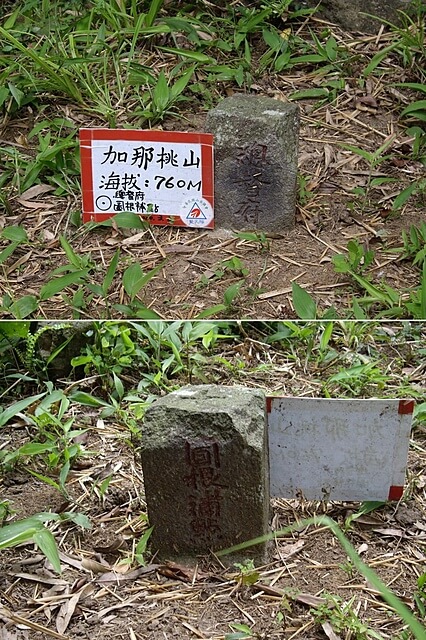 加那挑山
海拔：760M
總督府
圖根補點
總督府
圖根補點